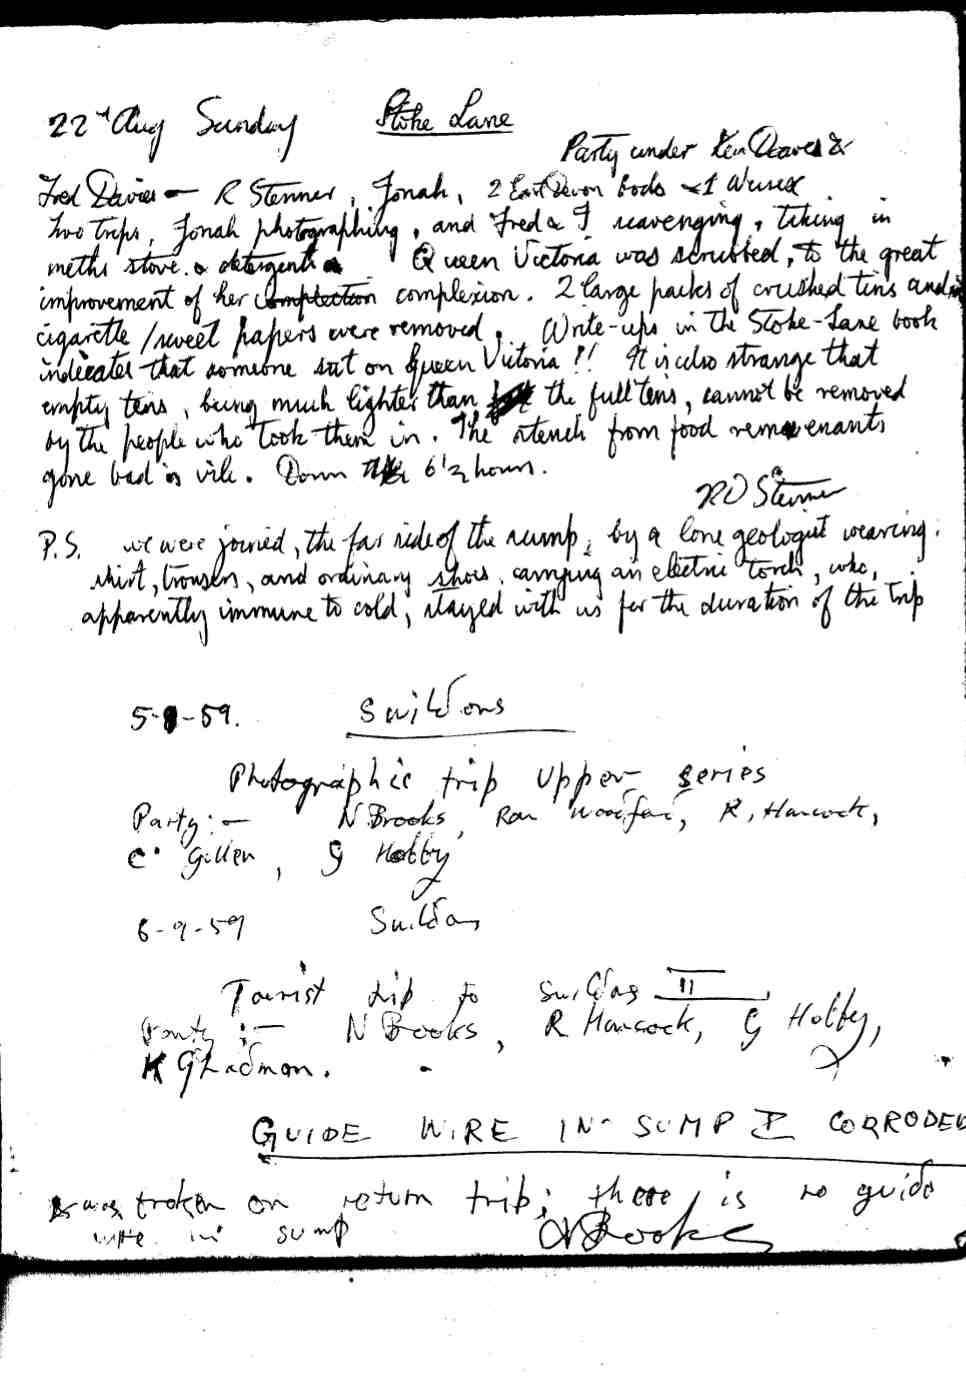 22nd Aug Sunday Stoke Lane
Party under Ken Deaves &
Fred Davies — R Stenner, Jonah, 2 East Devon bods & 1 Wessex
Two trips, Jonah photographing, and Fred & I scavenging, taking in
meths stove & detergent. Queen Victoria was scrubbed, to the great
improvement of her complection complexion. 2 large packs of crushed tins and
cigarette / sweet papers were removed. Write-ups in the Stoke-Lane book
indicates that someone sat on Queen Victoria?!! It is also strange that
empty tins, being much lighter than the full tins, cannot be removed
by the people who took them in. The stench from food remenants
gone bad is vile. Down 6½ hours.
RD Stenner
P.S. we were joined, the far side of the sump, by a lone geologist wearing:
shirt, trousers, and ordinary shoes, carrying an electric torch, who,
apparently immune to cold, stayed with us for the duration of the trip
5-9-59. Swildons
Photographic trip upper series
Party:— N Brooks, Ron R. Hancock,
C. Gillen, G Holby
6-9-59 Swildons
Tourist trip to Swildons II
Party:— N Brooks, R Hancock, G Holby,
K Gladmon.
GUIDE WIRE IN SUMP I CORRODED
& was broken on return trip; there is no guide
wire in sump NBrooks